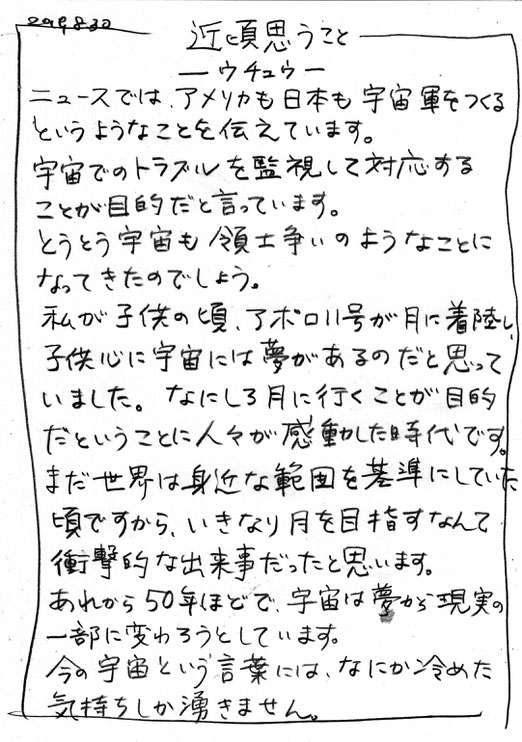 2019.8.30
近頃思うこと
ーウチュウー
ニュースでは、アメリカも日本も宇宙軍をつくる
というようなことを伝えています。
宇宙でのトラブルを監視して対応する
ことが目的だと言っています。
とうとう宇宙も領土争いのようなことに
なってきたのでしょう。
私が子供の頃、アポロ11号が月に着陸し、
子供心に宇宙には夢があるのだと思って
いました。なにしろ月に行くことが目的
だということに人々が感動した時代です。
まだ世界は身近な範囲を基準にしていた
頃ですから、いきなり月を目指すなんて
衝撃的な出来事だったと思います。
あれから50年ほどで、宇宙は夢から現実の
一部に変わろうとしています。
今の宇宙という言葉には、なにか冷めた
気持ちしか湧きません。